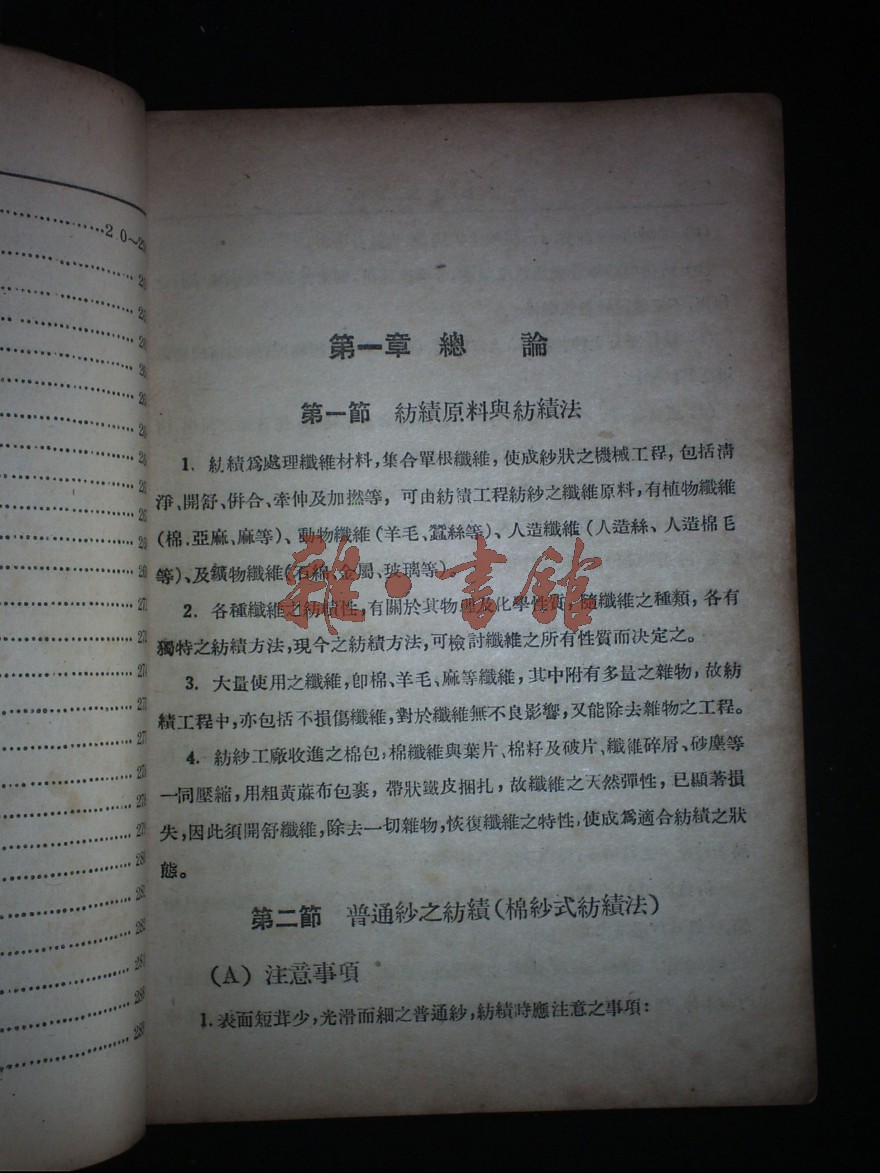 2 0~2
第一章 總 論
第一節 紡績原料與紡績法
1. 紡績爲處理纖維材料,集合單根纖維,使成紗狀之機械工程,包括清
淨、開舒、併合、牽伸及加撚等,可由紡績工程紡紗之纖維原料,有植物纖維
(棉.亞麻、麻等)、動物纖維(羊毛、蠶絲等)、人造纖維(人造絲、人造棉毛
等)、及鑛物纖維(石綿、金屬、玻璃等)。
2. 各種纖維之紡績性,有關於其物理及化學性質,隨纖維之種類,各有
獨特之紡績方法,現今之紡績方法,可檢討纖維之所有性質而決定之。
3. 大量使用之纖維,卽棉、羊毛、麻等纖維,其中附有多量之雜物,故紡
績工程中,亦包括不損傷纖維,對於纖維無不良影響,又能除去雜物之工程。
4. 紡紗工廠收進之棉包,棉纖維與葉片、棉籽及破片、纖維碎屑、砂塵等
一同壓縮,用粗黃蔴布包裹,帶狀鐵皮捆扎,故纖維之天然彈性,已顯著損
失,因此須開舒纖維,除去一切雜物,恢復纖維之特性,使成爲適合紡績之狀
態。
第二節 普通紗之紡績(棉紗式紡績法)
(A) 注意事項
1. 表面短茸少,光滑而細之普通紗,紡績時應注意之事項:
雜·書館